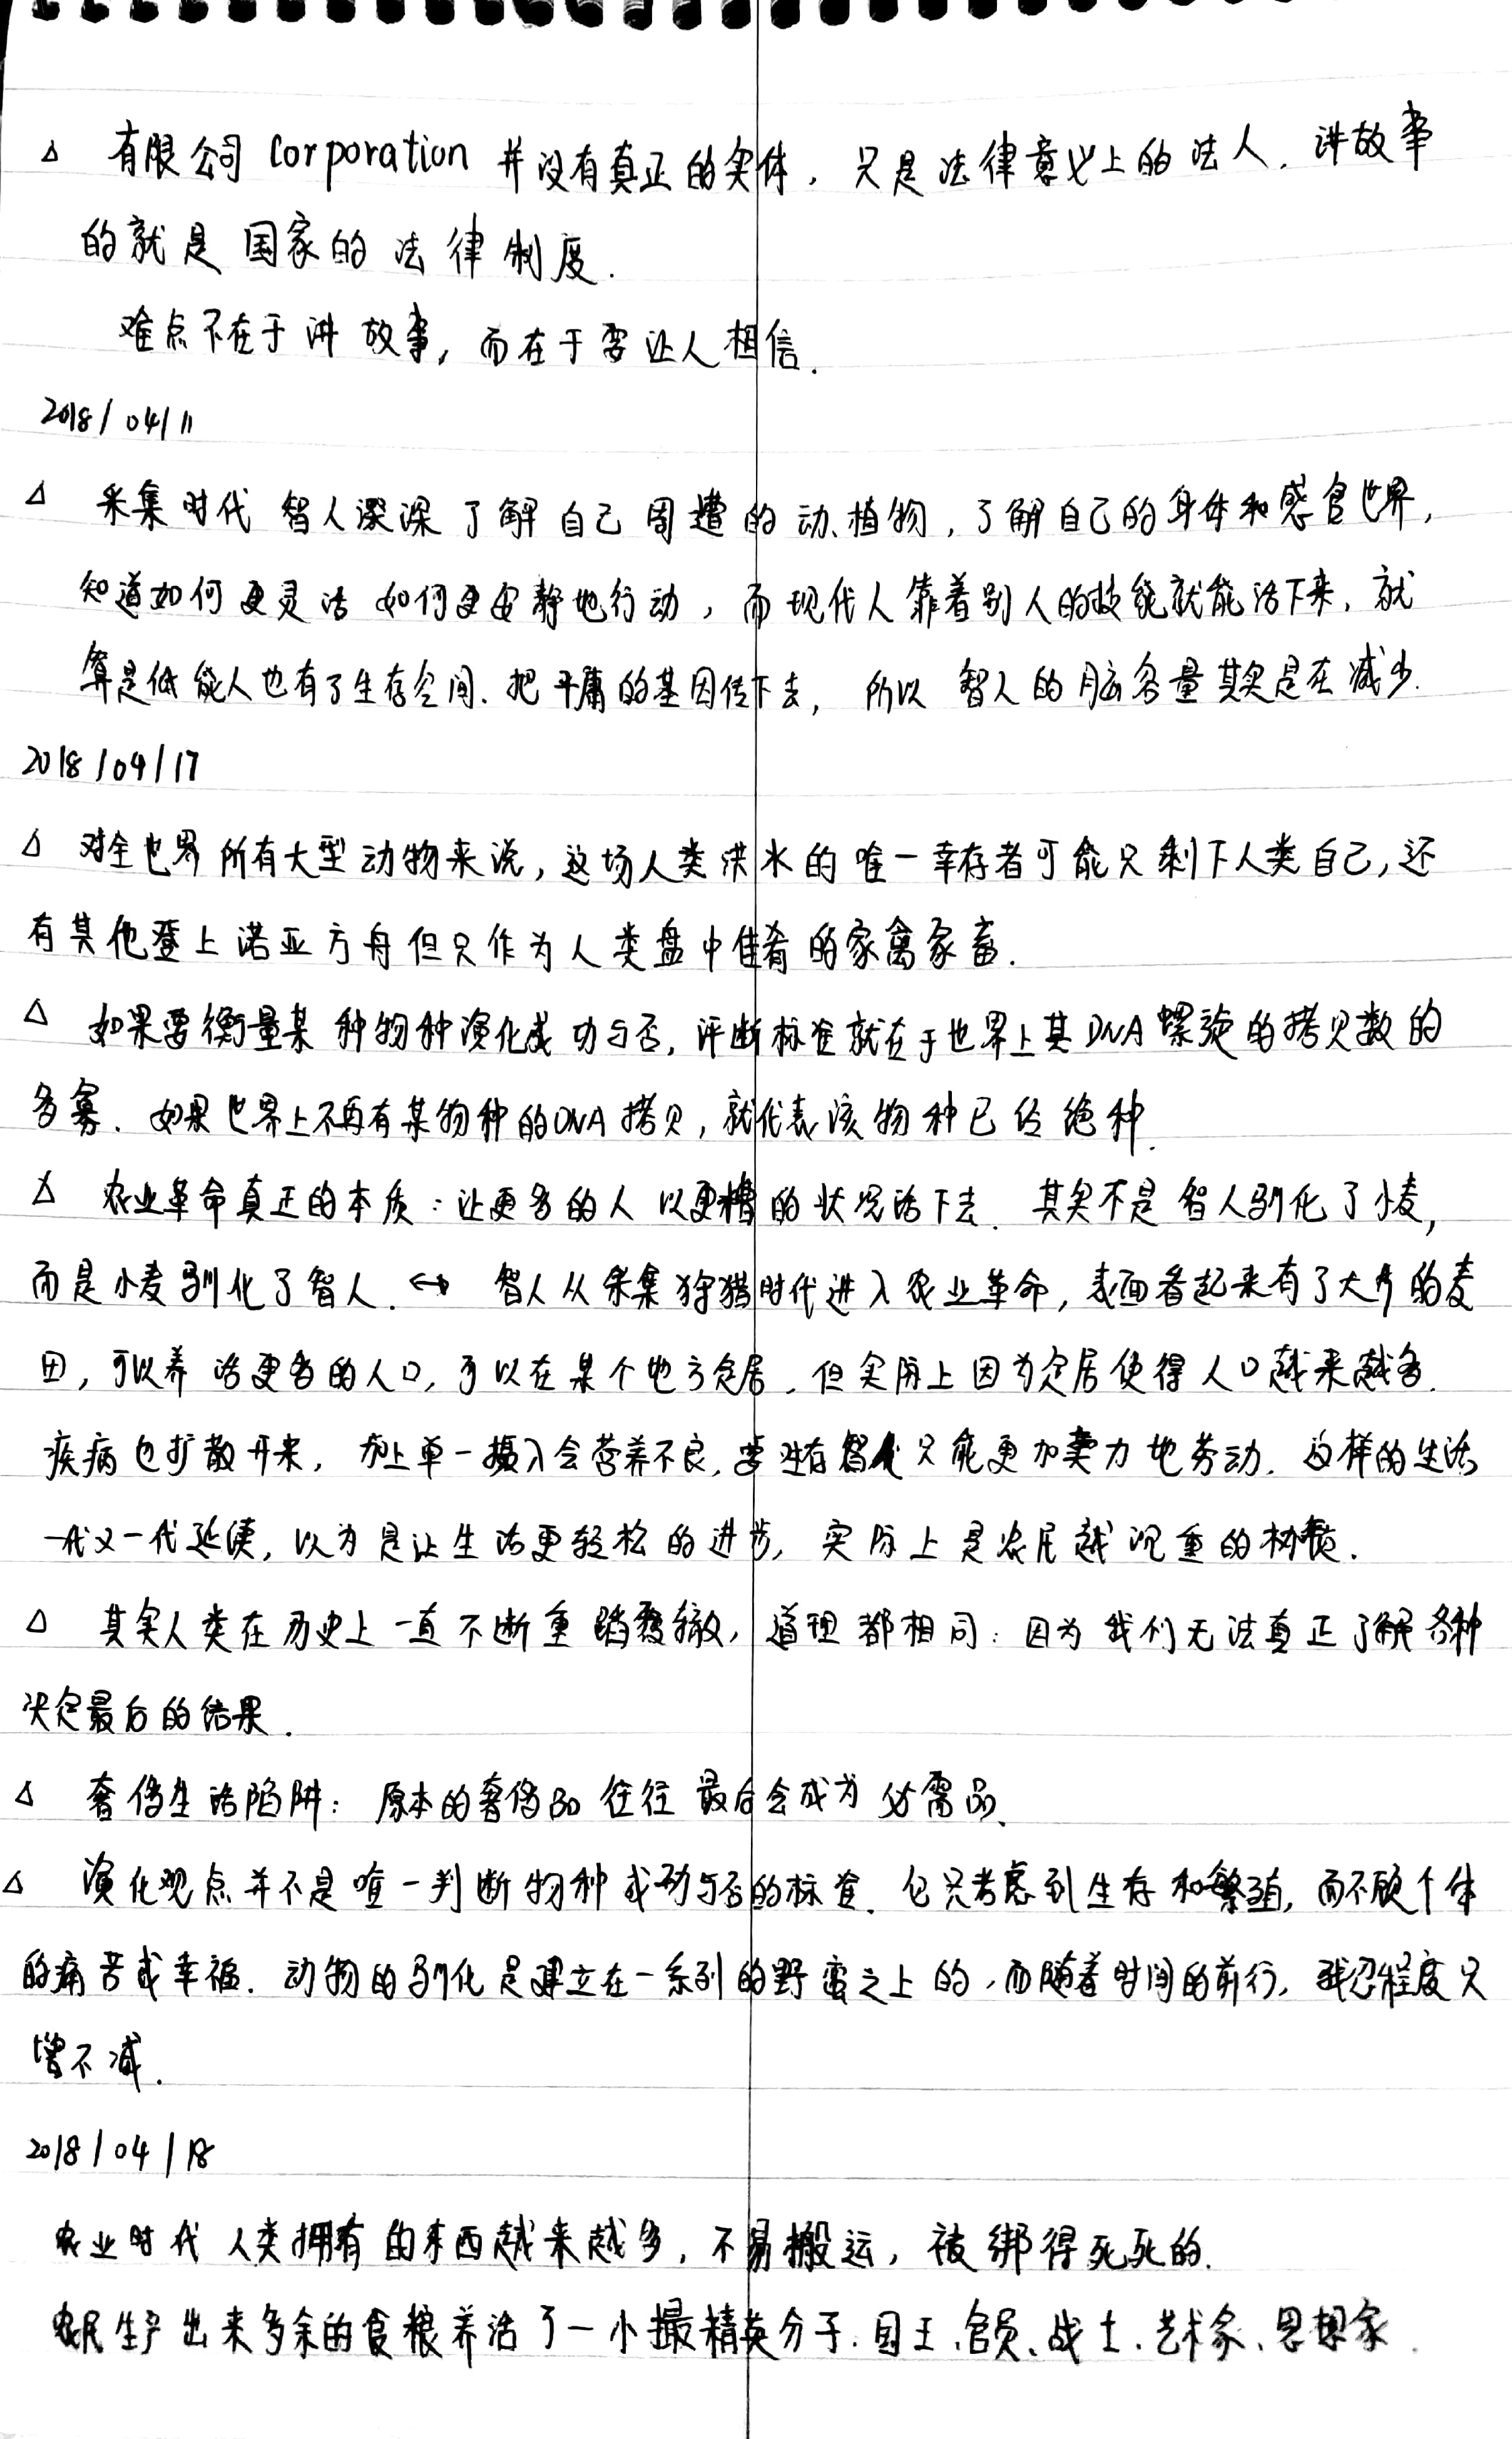 △ 有限公司 Corporation 并没有真正的实体，只是法律意义上的法人. 讲故事
的就是国家的法律制度.
难点不在于讲故事, 而在于要让人相信.
2018/04/11
△ 采集时代智人深深了解自己周遭的动、植物, 了解自己的身体和感官世界,
知道如何更灵活如何更安静地行动, 而现代人靠着别人的技能就能活下来, 就
算是低能人也有了生存空间. 把平庸的基因传下去, 所以智人的脑容量其实是在减少.
2018/04/17
△ 对全世界所有大型动物来说, 这场人类洪水的唯一幸存者可能只剩下人类自己, 还
有其他登上诺亚方舟但只作为人类盘中佳肴的家禽家畜.
△ 如果要衡量某种物种演化成功与否, 评断标准就在于世界上其DNA螺旋的拷贝数的
多寡. 如果世界上不再有某物种的DNA拷贝, 就代表该物种已经绝种.
△ 农业革命真正的本质: 让更多的人以更糟的状况活下去. 其实不是智人驯化了小麦,
而是小麦驯化了智人. ↔ 智人从采集狩猎时代进入农业革命, 表面看起来有了大片的麦
田, 可以养活更多的人口, 可以在某个地方定居, 但实际上因为定居使得人口越来越多.
疾病也扩散开来, 加上单一摄入会营养不良, 要生存智人只能更加卖力地劳动. 这样的生活
一代又一代延续, 以为是让生活更轻松的进步, 实际上是农民越沉重的枷锁.
△ 其实人类在历史上一直不断重蹈覆辙, 道理都相同: 因为我们无法真正了解各种
决定最后的结果.
△ 奢侈生活陷阱: 原本的奢侈品往往最后会成为必需品.
△ 演化观点并不是唯一判断物种成功与否的标准. 它只考虑到生存和繁殖, 而不顾个体
的痛苦或幸福. 动物的驯化是建立在一系列的野蛮之上的, 而随着时间的前行, 残忍程度只
增不减.
2018/04/18
农业时代人类拥有的东西越来越多, 不易搬运, 被绑得死死的.
农民生产出来多余的食粮养活了一小撮精英分子. 国王、官员、战士、艺术家、思想家.